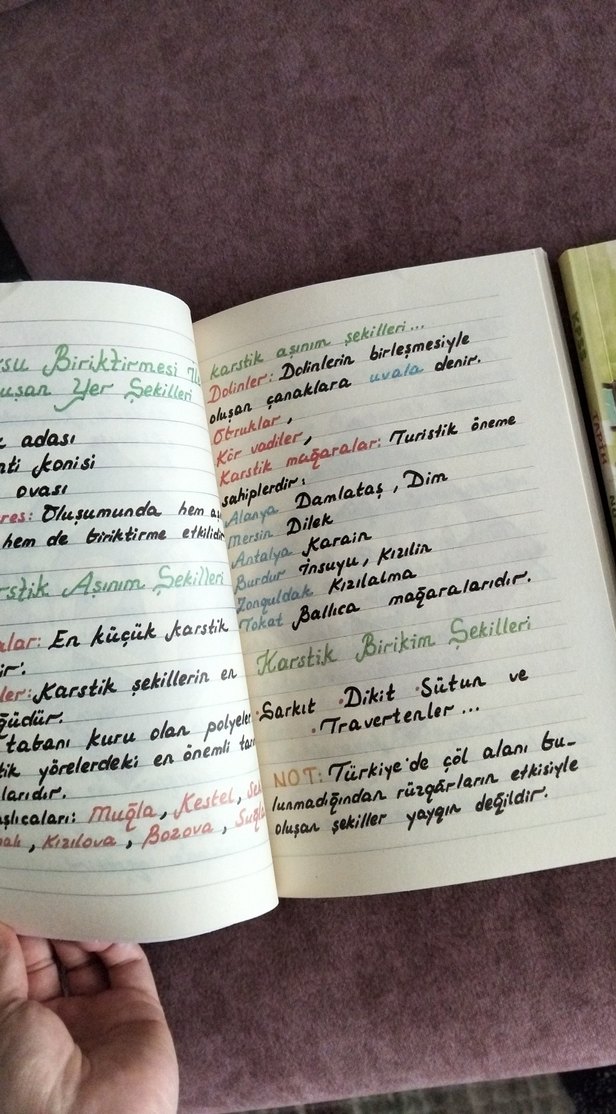 Biriktirmesi
Yer Şekilleri
adası
konisi
ovası
Oluşumunda hem
hem de biriktirme
Aşınım Şekilleri
En küçük karstik
Karstik şekillerin en
tabanı kuru olan polyeler
yörelerdeki en önemli
Muğla, Kestel,
, Kızılova, Bozova,
karstik aşınım şekilleri...
Dolinler: Dolinlerin birleşmesiyle
oluşan çanaklara uvala denir.
Obruklar,
Kör vadiler,
Karstik mağaralar: Turistik öneme
sahiplerdir:
Alanya Damlataş, Dim
Mersin Dilek
Antalya Karain
Burdur İnsuyu, Kızılin
Zonguldak Kızılalma
Tokat Ballıca mağaralarıdır.
Karstik Birikim Şekilleri
•Sarkıt •Dikit •Sütun ve
•Travertenler...
NOT: Türkiye'de çöl alanı bu-
lunmadığından rüzgârların etkisiyle
oluşan şekiller yaygın değildir.
TARİH